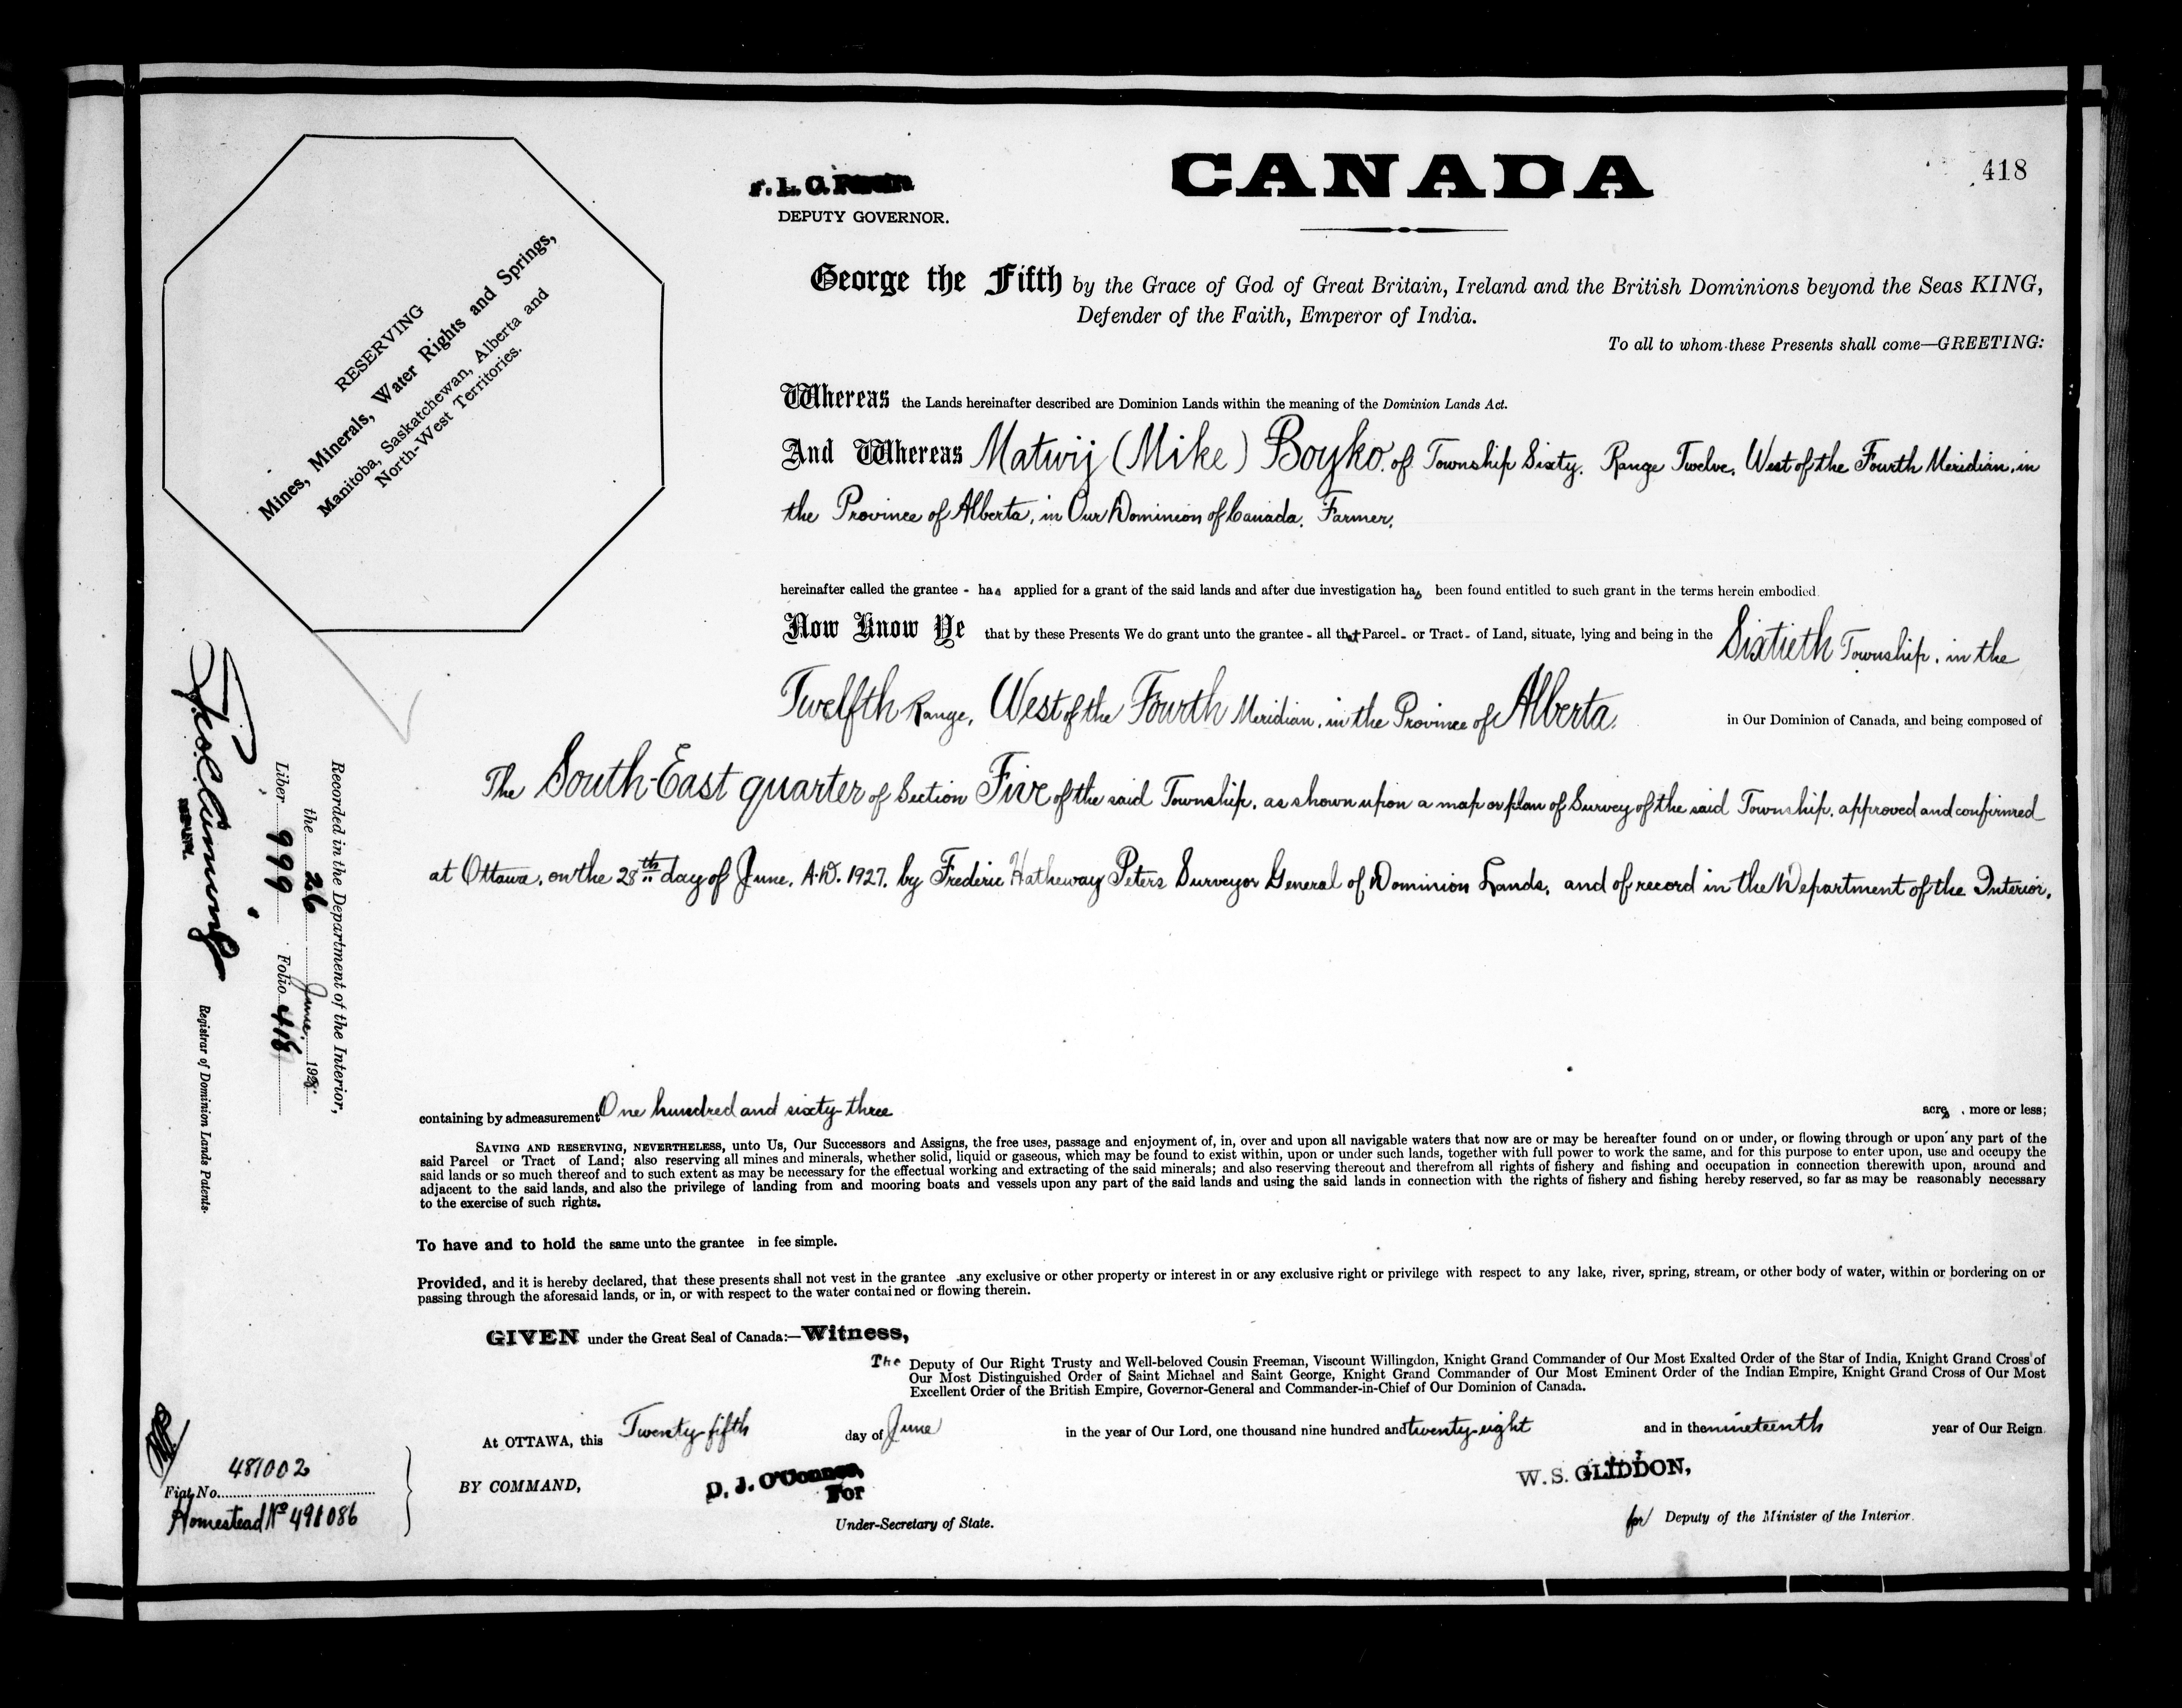 418
CANADA
DEPUTY GOVERNOR.
George the Fifth by the Grace of God of Great Britain, Ireland and the British Dominions beyond the Seas KING,
Defender of the Faith, Emperor of India.
To all to whom these Presents shall come—GREETING:
RESERVING
Mines, Minerals, Water Rights and Springs,
Manitoba, Saskatchewan, Alberta and
North-West Territories.
Whereas the Lands hereinafter described are Dominion Lands within the meaning of the Dominion Lands Act.
And Whereas Matwij (Mike) Boyko, of Township Sixty, Range Twelve, West of the Fourth Meridian, in
the Province of Alberta, in Our Dominion of Canada, Farmer,
hereinafter called the grantee - has applied for a grant of the said lands and after due investigation has been found entitled to such grant in the terms herein embodied.
Now Know Ye that by these Presents We do grant unto the grantee - all that Parcel - or Tract - of Land, situate, lying and being in the Sixtieth Township, in the
Twelfth Range, West of the Fourth Meridian, in the Province of Alberta, in Our Dominion of Canada, and being composed of
The South-East quarter of Section Five of the said Township, as shown upon a map or plan of Survey of the said Township, approved and confirmed
at Ottawa, on the 28th day of June, A.D. 1927, by Frederic Hatheway Peters Surveyor General of Dominion Lands, and of record in the Department of the Interior.
containing by admeasurement One hundred and sixty-three acres, more or less;
SAVING AND RESERVING, NEVERTHELESS, unto Us, Our Successors and Assigns, the free uses, passage and enjoyment of, in, over and upon all navigable waters that now are or may be hereafter found on or under, or flowing through or upon any part of the
said Parcel or Tract of Land; also reserving all mines and minerals, whether solid, liquid or gaseous, which may be found to exist within, upon or under such lands, together with full power to work the same, and for this purpose to enter upon, use and occupy the
said lands or so much thereof and to such extent as may be necessary for the effectual working and extracting of the said minerals; and also reserving thereout and therefrom all rights of fishery and fishing and occupation in connection therewith upon, around and
adjacent to the said lands, and also the privilege of landing from and mooring boats and vessels upon any part of the said lands and using the said lands in connection with the rights of fishery and fishing hereby reserved, so far as may be reasonably necessary
to the exercise of such rights.
To have and to hold the same unto the grantee in fee simple.
Provided, and it is hereby declared, that these presents shall not vest in the grantee any exclusive or other property or interest in or any exclusive right or privilege with respect to any lake, river, spring, stream, or other body of water, within or bordering on or
passing through the aforesaid lands, or in, or with respect to the water contained or flowing therein.
GIVEN under the Great Seal of Canada:—Witness,
The Deputy of Our Right Trusty and Well-beloved Cousin Freeman, Viscount Willingdon, Knight Grand Commander of Our Most Exalted Order of the Star of India, Knight Grand Cross of
Our Most Distinguished Order of Saint Michael and Saint George, Knight Grand Commander of Our Most Eminent Order of the Indian Empire, Knight Grand Cross of Our Most
Excellent Order of the British Empire, Governor-General and Commander-in-Chief of Our Dominion of Canada.
At OTTAWA, this Twenty-fifth day of June in the year of Our Lord, one thousand nine hundred and twenty-eight and in the nineteenth year of Our Reign.
BY COMMAND,
D. J. O'Connor,
For
Under-Secretary of State.
W. S. GLIDDON,
for Deputy of the Minister of the Interior.
Fiat No. 481002
Homestead No 491086
Recorded in the Department of the Interior,
the 26 June, 1928
Liber 999 Folio 418
DEPUTY.
Registrar of Dominion Lands Patents.